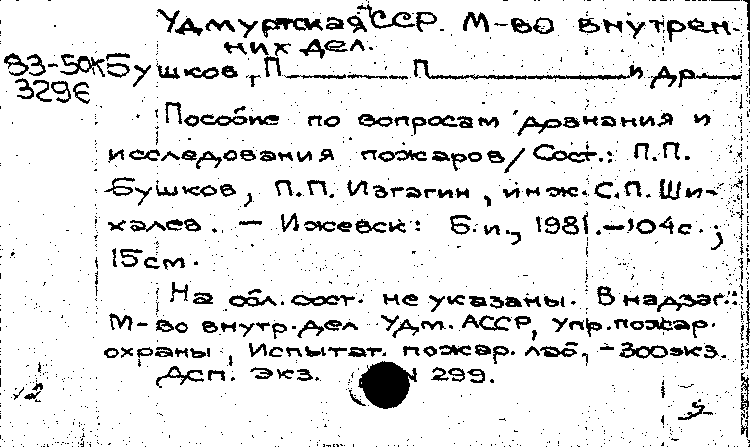 Удмуртская АССР. М-во внутрен-
них дел.
83-50К Бушков, П. П. и др.
3296
Пособие по вопросам дознания и
исследования пожаров/Сост.: П.П.
Бушков, П.П. Изгагин, инж. С.П. Ши-
халев. — Ижевск: Б.и., 1981. — 104с.;
15см.
На обл. сост. не указаны. В надзаг.:
М-во внутр. дел Удм. АССР, Упр. пожар.
охраны, Испытат. пожар. лаб, — 300экз.
Дсп. Экз. N 299.
12